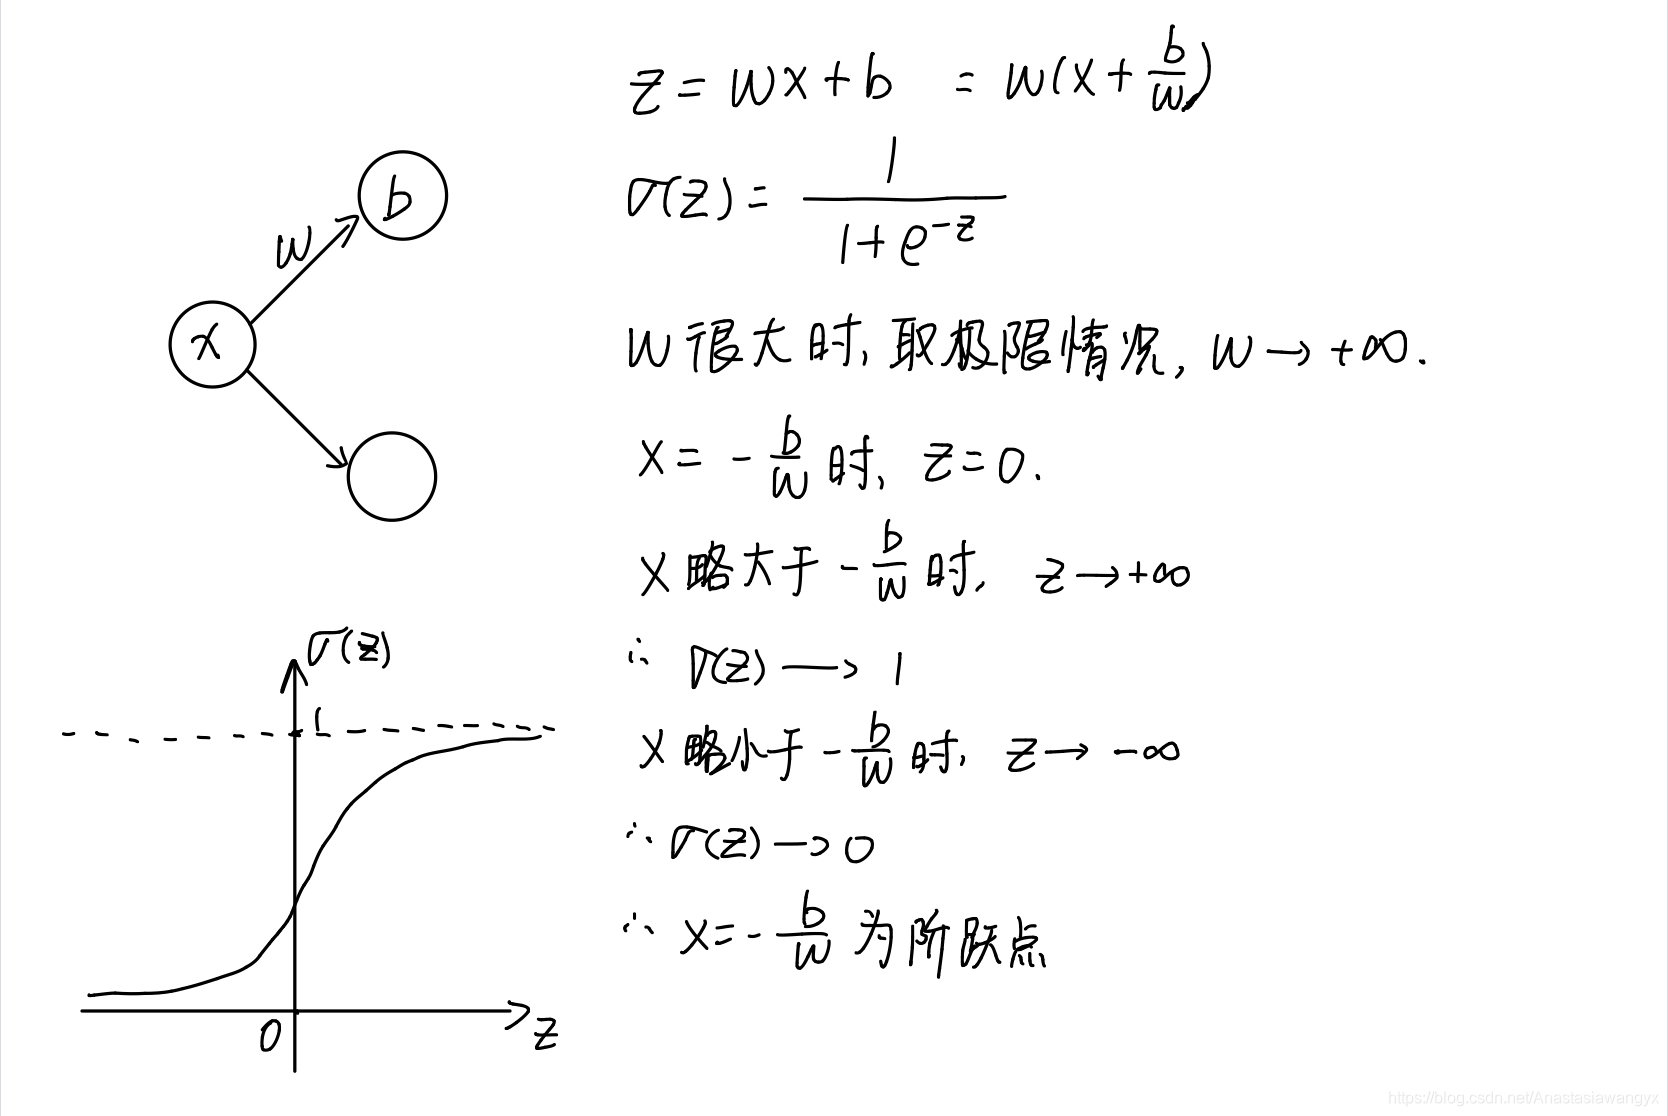 z = wx + b = w(x + b/w)
σ(z) = 1/(1 + e^{-z})
w很大时, 取极限情况, w → +∞.
x = - b/w 时, z = 0.
x 略大于 - b/w 时, z → +∞
∴ σ(z) → 1
x 略小于 - b/w 时, z → -∞
∴ σ(z) → 0
∴ x = - b/w 为阶跃点
b
w
x
σ(z)
1
0
z
https://blog.csdn.net/Anastasiawangyx